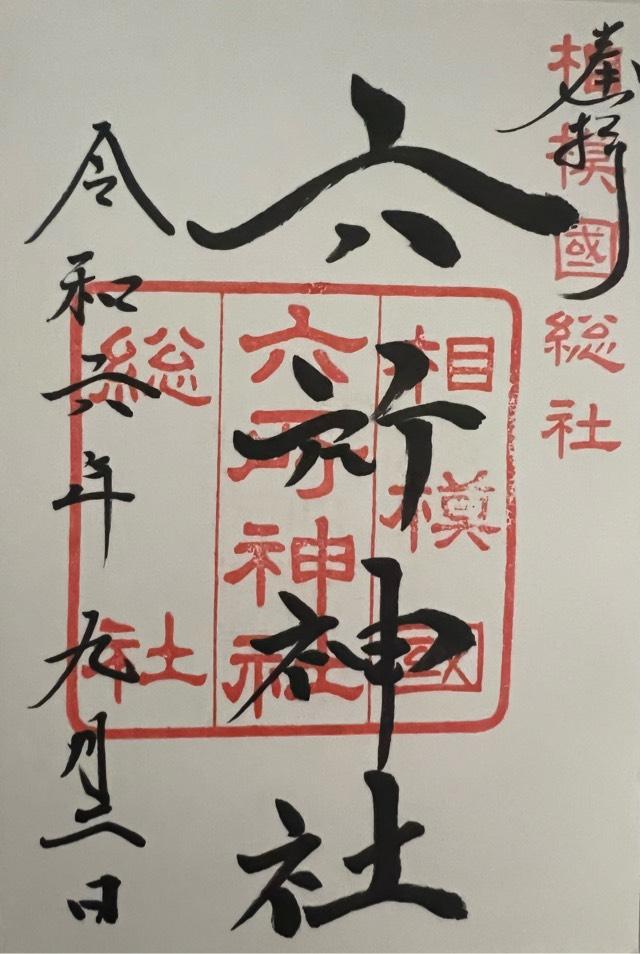 奉拝
相模國総社
六所神社
相模國
六所神社
総社
令和六年九月三日